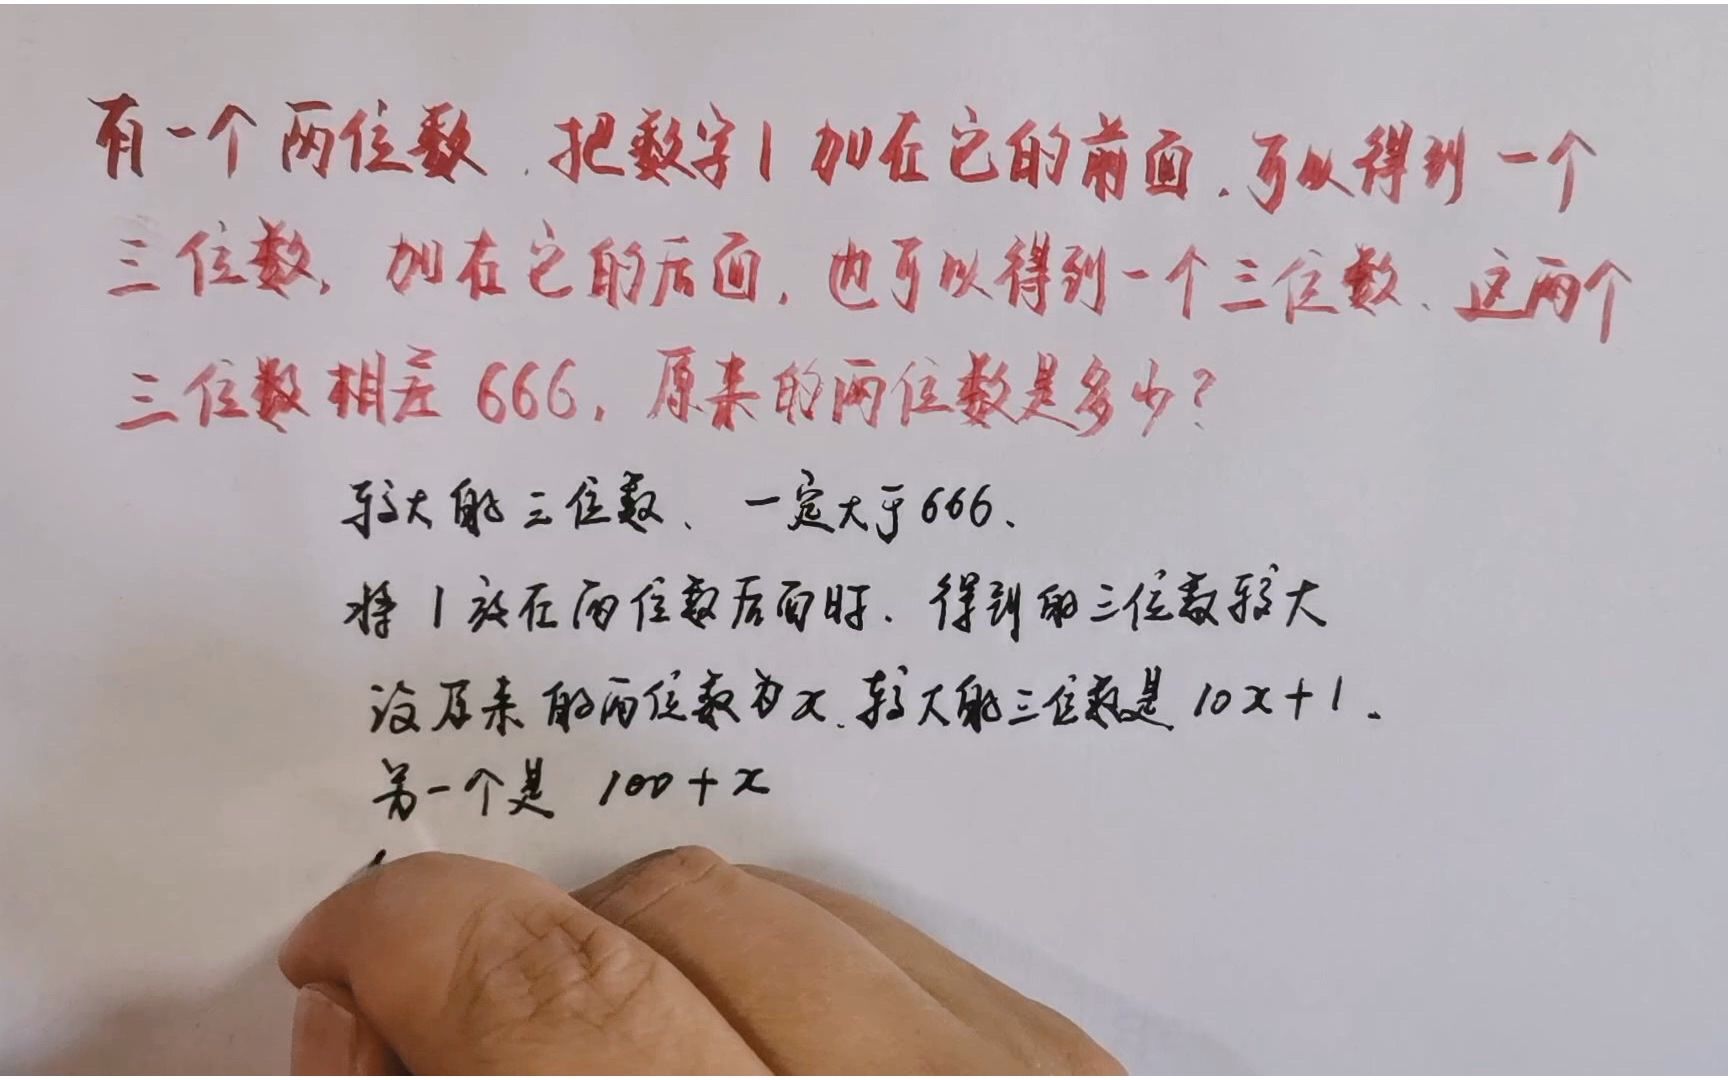 有一个两位数.把数字1加在它的前面.可以得到一个
三位数,加在它的后面,也可以得到一个三位数、这两个
三位数相差666,原来的两位数是多少?
较大的三位数、一定大于666、
将1放在两位数后面时.得到的三位数较大
设原来的两位数为x.较大的三位数是10x+1.
另一个是 100+x